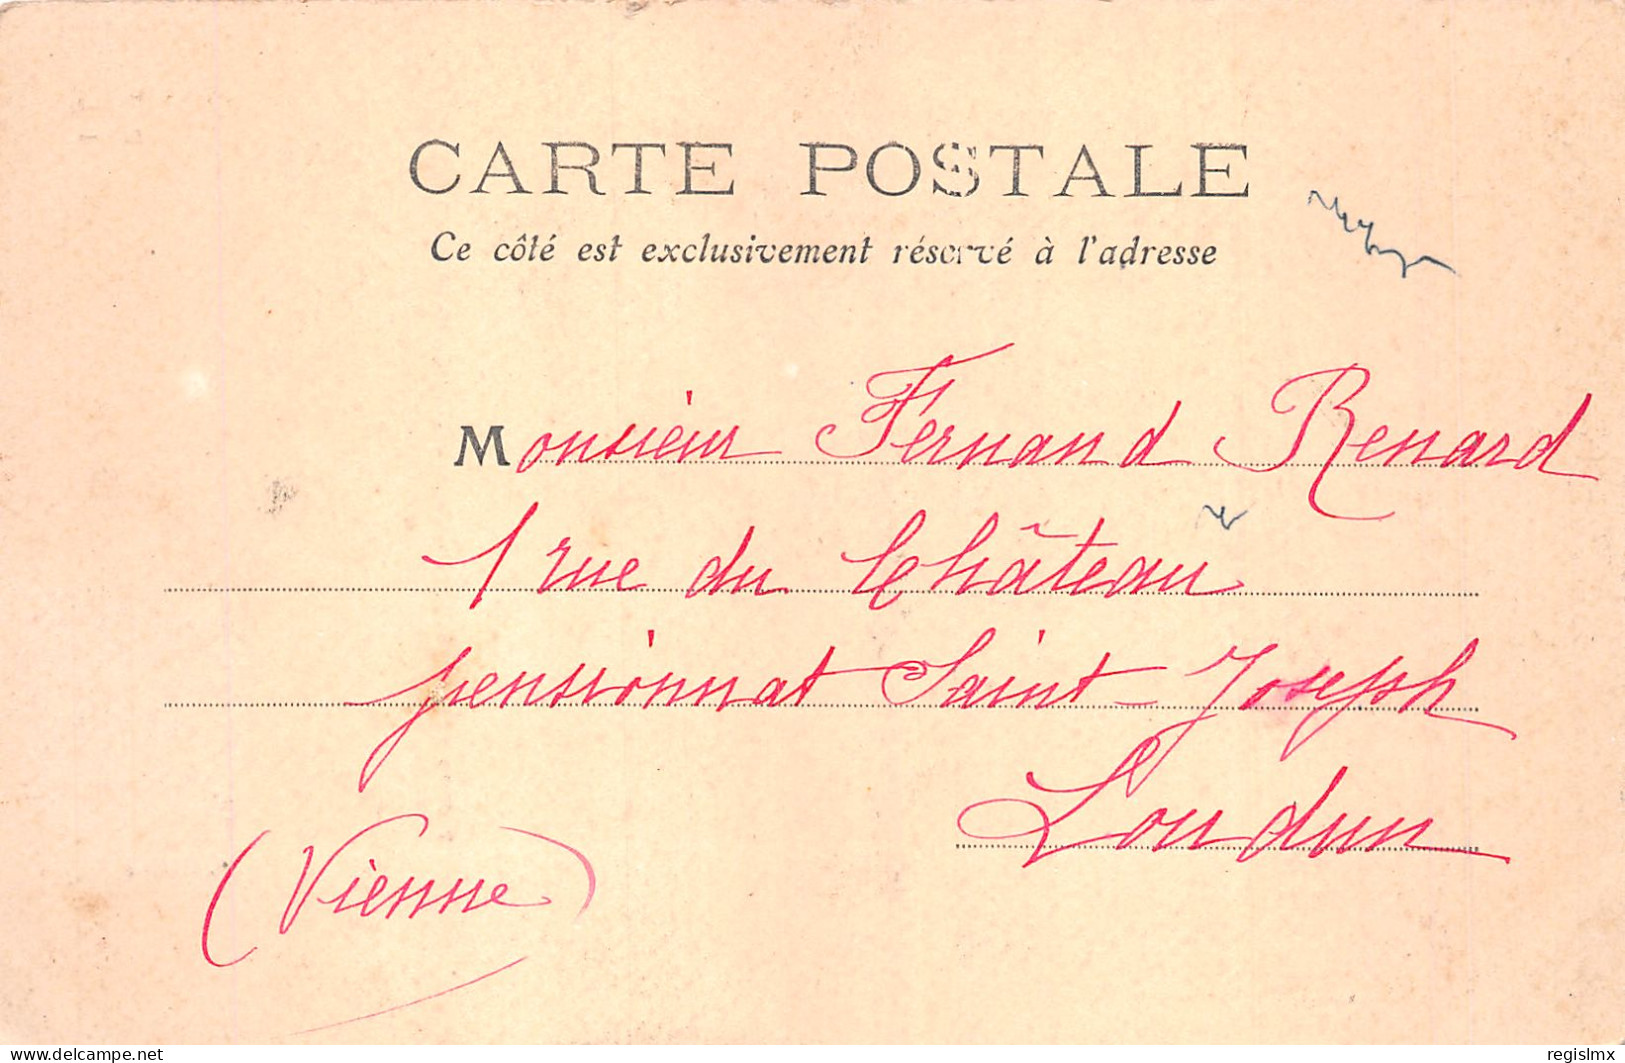 CARTE POSTALE
Ce côté est exclusivement réservé à l'adresse
Monsieur Fernand Renard
1 rue du Château
pensionnat Saint-Joseph
Loudun
(Vienne)
www.delcampe.net
regislmx